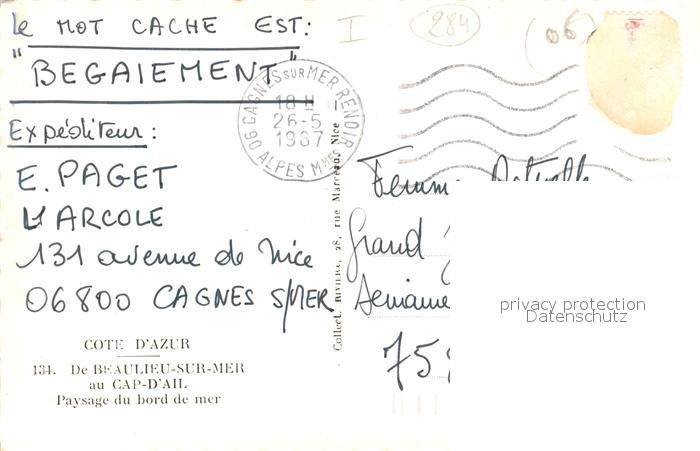 le MOT CACHE EST:
"BEGAIEMENT"
Expéditeur:
E. PAGET
L'ARCOLE
131 avenue de Nice
06800 CAGNES S/MER
COTE D'AZUR
134. De BEAULIEU-SUR-MER
au CAP-D'AIL
Paysage du bord de mer
I
284
(06)
06 CAGNES SUR MER RENOIR
18 H
26-5
1987
ALPES MMES
Collect. RIVIERA, 28, rue Marceau, Nice
Femme Actuelle
Grand
Semaine
75
privacy protection
Datenschutz